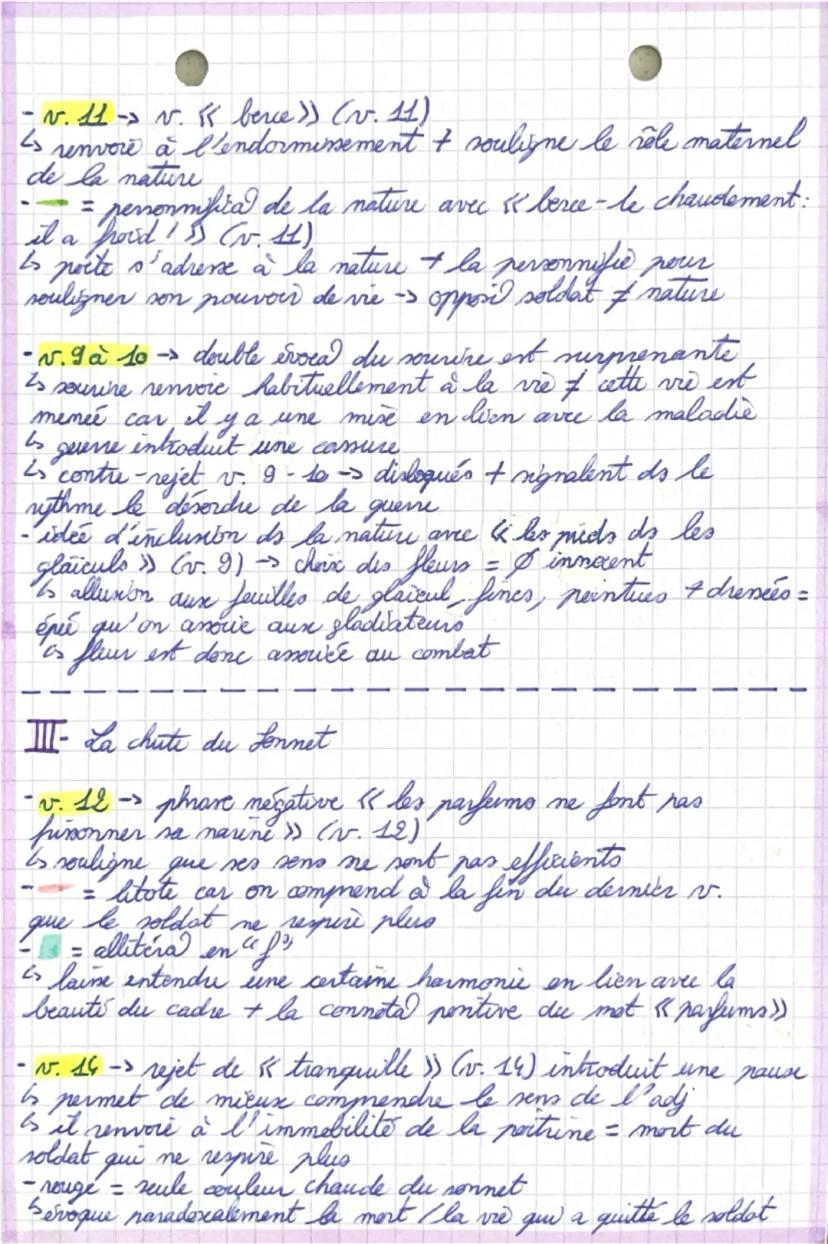 - v. 11 -> v. « berce » (v. 11)
↳ renvoie à l'endormissement + souligne le rôle maternel
de la nature
- = personnifica° de la nature avec « berce-le chaudement :
il a froid ! » (v. 11)
↳ poète s'adresse à la nature + la personnifie pour
souligner son pouvoir de vie -> opposi° soldat ≠ nature
- v. 9 à 10 -> double évoca° du sourire est surprenante
↳ sourire renvoie habituellement à la vie ≠ cette vie est
menée car il y a une mise en lien avec la maladie
↳ guerre introduit une cassure
↳ contre-rejet v. 9 - 10 -> disloqués + signalent ds le
rythme le désordre de la guerre
- idée d'inclusion ds la nature avec « les pieds ds les
glaïeuls » (v. 9) -> choix des fleurs = Ø innocent
↳ allusion aux feuilles de glaïeul, fines, pointues + dressées =
épée qu'on associe aux gladiateurs
↳ fleur est donc associée au combat
III- La chute du Sonnet
- v. 12 -> phrase négative « les parfums ne font pas
frissonner sa narine » (v. 12)
↳ souligne que ses sens ne sont pas efficients
- = litote car on comprend à la fin du dernier v.
que le soldat ne respire plus
- = allitéra° en "f"
↳ laisse entendu une certaine harmonie en lien avec la
beauté du cadre + la connota° positive du mot « parfums »
- v. 14 -> rejet de « tranquille » (v. 14) introduit une pause
↳ permet de mieux comprendre le sens de l'adj
↳ il renvoie à l'immobilité de la poitrine = mort du
soldat qui ne respire plus
- rouge = seule couleur chaude du sonnet
↳ évoque paradoxalement la mort / la vie qui a quitté le soldat